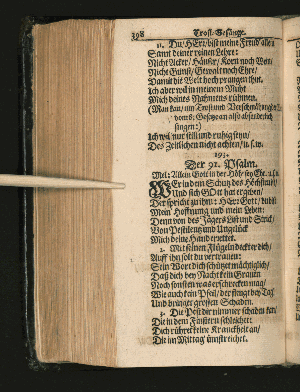 398 Trost-Gesänge.
11. Du / HErr / bist meine Freud allein
Samt deiner reinen Lehre:
Nicht Acker / Häuser / Korn noch Wein
Nicht Gunst / Gewalt noch Ehre /
Damit die Welt hoch prangen thut,
Ich aber will in meinem Muht
Mich deines Nahmens rühmen.
singen:)
Ich will nur still und ruhig seyn /
Des Zeitlichen nicht achten / u.s.w.
193.
Der 91. Psalm.
Mel: Allein Gott in der Höh sey Ehr.
WEr in dem Schutz des Höchsten ist /
Und sich GOtt hat ergeben /
Der spricht zu ihm: HErr Gott / du bist
Mein Hoffnung und mein Leben:
Denn von des Jägers List und Strick /
Von Pestilentz und Ungelück
Mich deine Hand errettet.
2. Mit seinen Flügeln decket er dich /
Auff ihn solt du vertrauen:
Sein Wort dich schützet mächtiglich /
Daß dich bey Nacht kein Grauen
Noch sonsten was erschrecken mag /
Wie auch kein Pfeil / der fleugt bey Tag
Und bringet grossen Schaden.
3. Die Pest dir nimmer schaden kan /
Die in dem Finstern schleichet:
Dich rühret keine Kranckheit an /
Die im Mittag umstreichet.